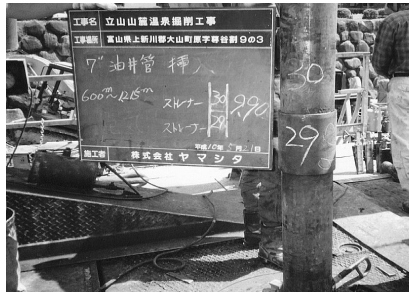 工事名 立山山麓温泉掘削工事
工事場所 富山県上新川郡大山町原字尊谷割9の3
7" 油井管 挿入
600m~1215m
ストレーナー 30
9.90
ストレーナー 29
平成10年 月 21日
施工者 株式会社 ヤマシタ
30
29